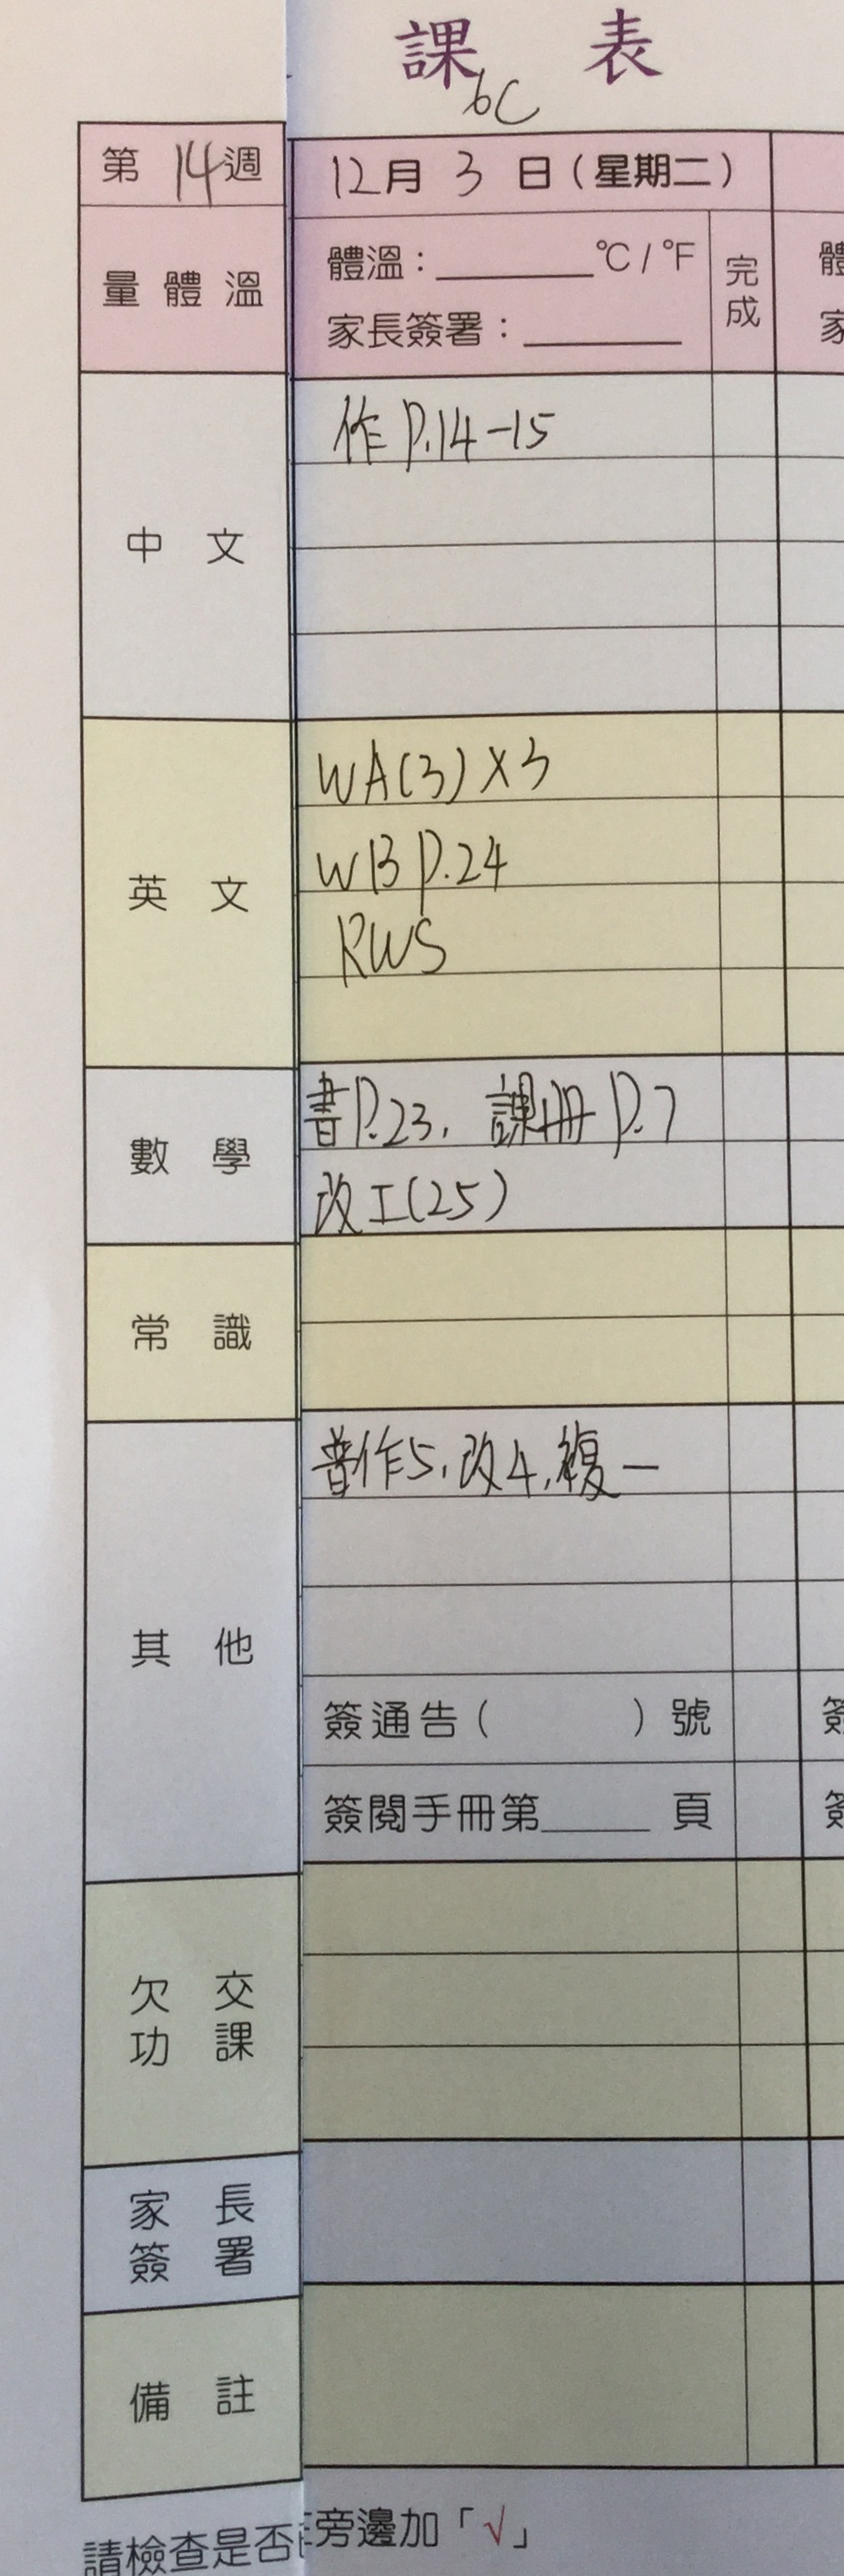 課表
6C
第14週
12月3日(星期二)
量體溫
體溫：______°C / °F
家長簽署：______
完成
體
家
中文
作 P.14-15
英文
WA(3)X3
WB P.24
RWS
數學
書P.23, 課冊 P.7
改工(25)
常識
其他
普作5,改4,複一
簽通告( )號
簽
簽閱手冊第_____頁
簽
欠交功課
家長簽署
備註
請檢查是否
旁邊加「√」